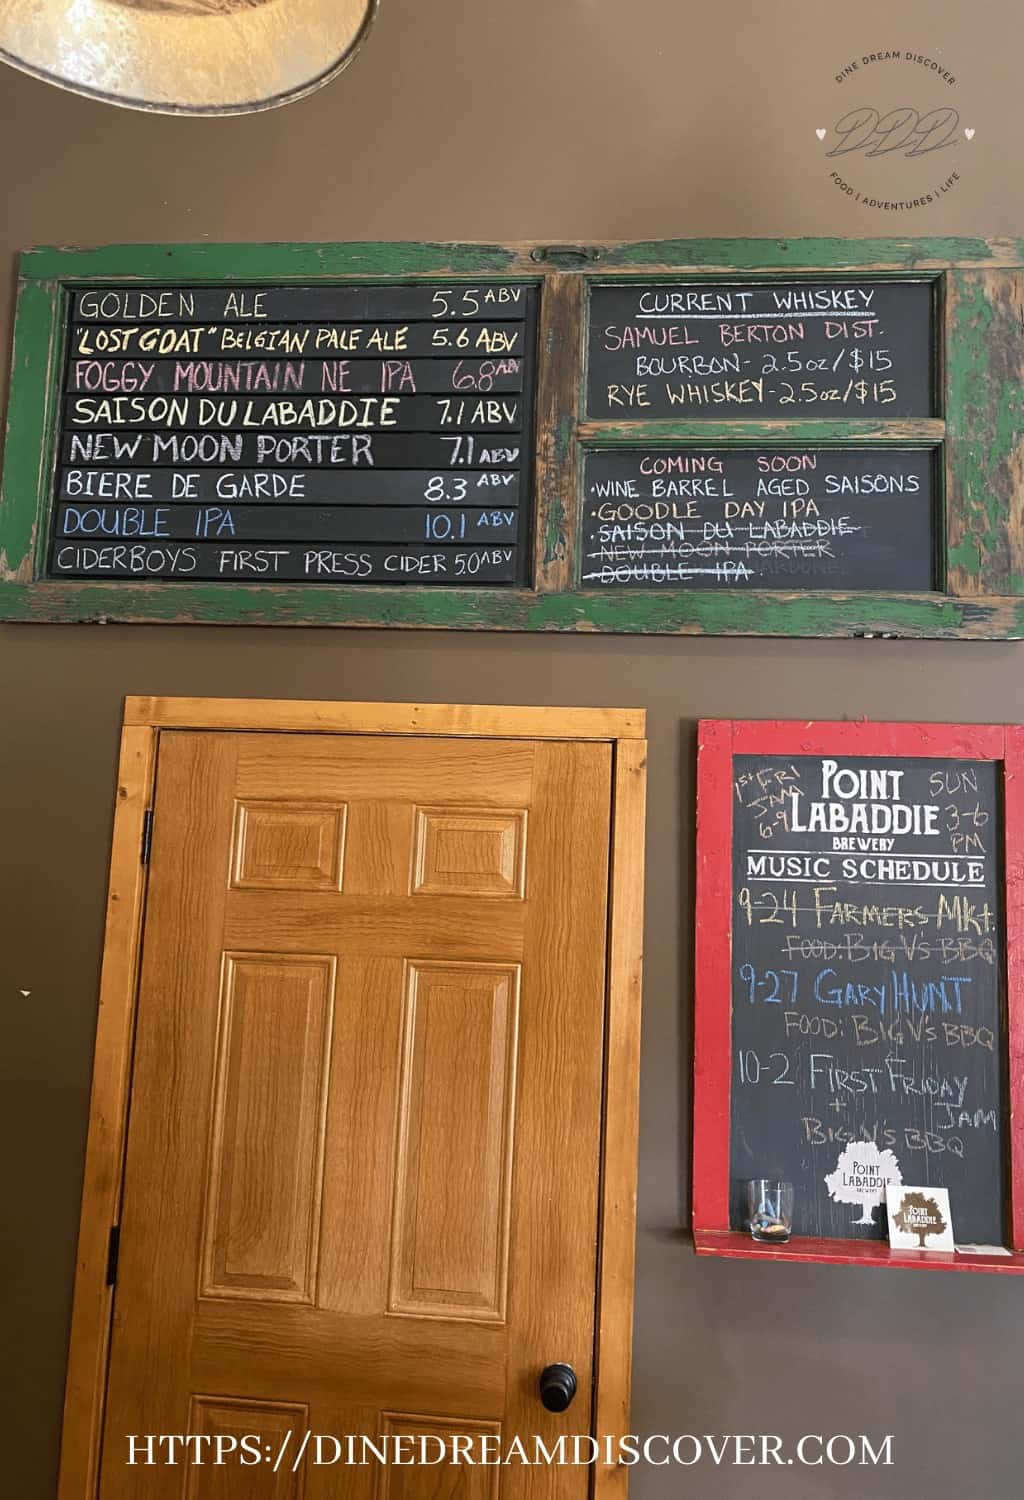 DINE DREAM DISCOVER
DDD
FOOD | ADVENTURES | LIFE
GOLDEN ALE 5.5 ABV
"LOST GOAT" BELGIAN PALE ALE 5.6 ABV
FOGGY MOUNTAIN NE IPA 6.8 ABV
SAISON DU LABADDIE 7.1 ABV
NEW MOON PORTER 7.1 ABV
BIERE DE GARDE 8.3 ABV
DOUBLE IPA 10.1 ABV
CIDERBOYS FIRST PRESS CIDER 5.0 ABV
CURRENT WHISKEY
SAMUEL BERTON DIST.
BOURBON- 2.5oz/$15
RYE WHISKEY-2.5oz/$15
COMING SOON
·WINE BARREL AGED SAISONS
·GOODLE DAY IPA
·SAISON DU LABADDIE
·NEW MOON PORTER
·DOUBLE IPA
1st FRI
JAM
6-9
POINT
LABADDIE
BREWERY
SUN
3-6
PM
MUSIC SCHEDULE
9-24 FARMERS MKt.
FOOD: BIG V's BBQ
9-27 GARY HUNT
FOOD: BIG V's BBQ
10-2 FIRST FRIDAY
JAM
+
BIG V's BBQ
POINT
LABADDIE
BREWERY
POINT
LABADDIE
BREWERY
HTTPS://DINEDREAMDISCOVER.COM